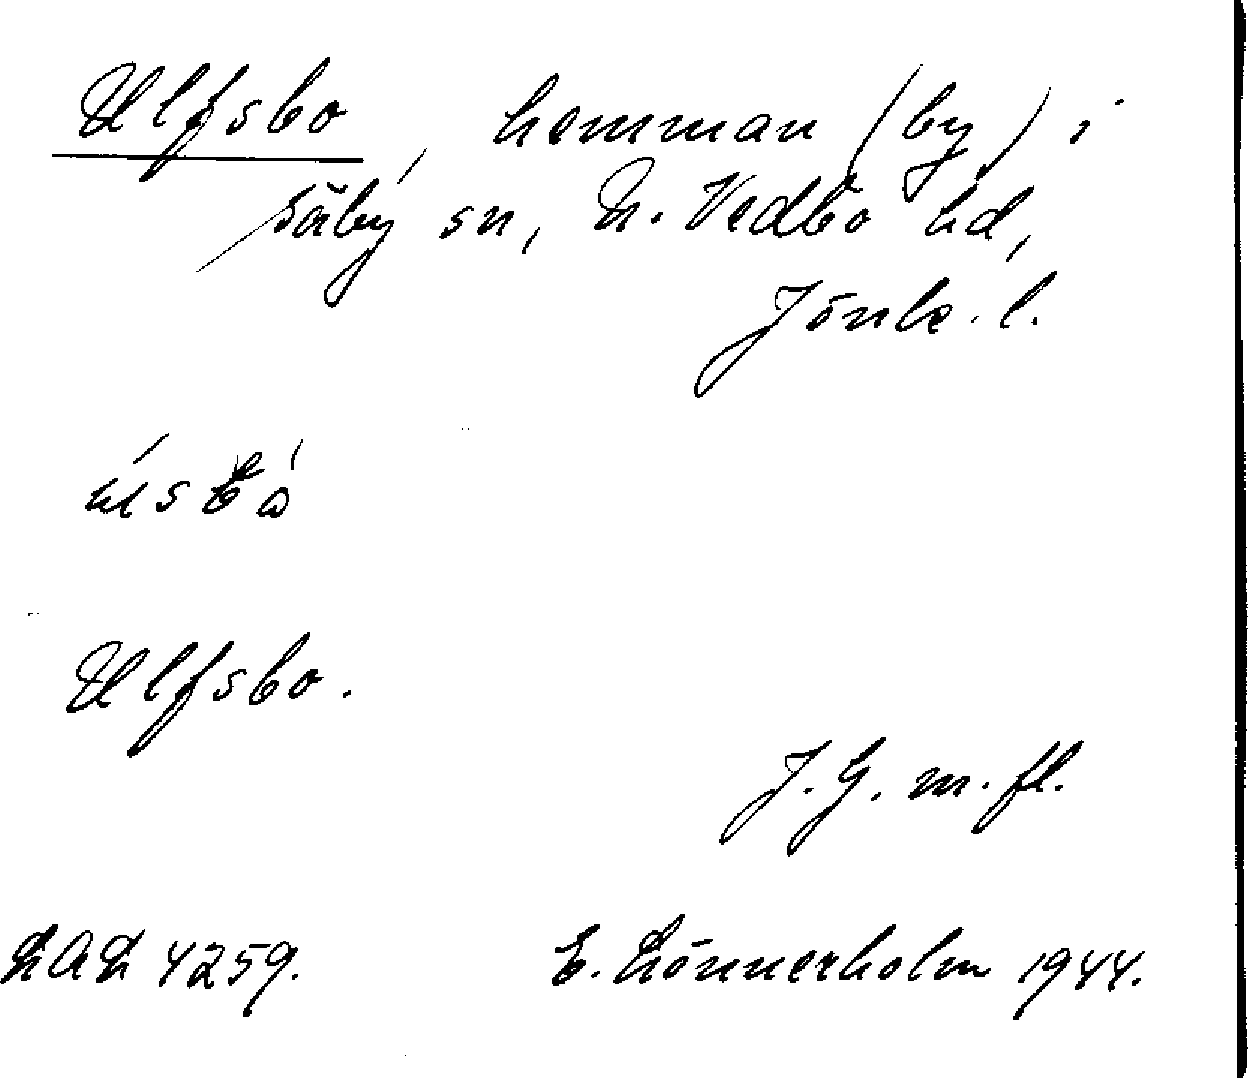 Ulfsbo, hemman (by) i
Säby sn, N. Vedbo hd,
Jönk. l.
Ulfsbo.
J. G. m. fl.
LAL 4259.
E. Lönnerholm 1944.